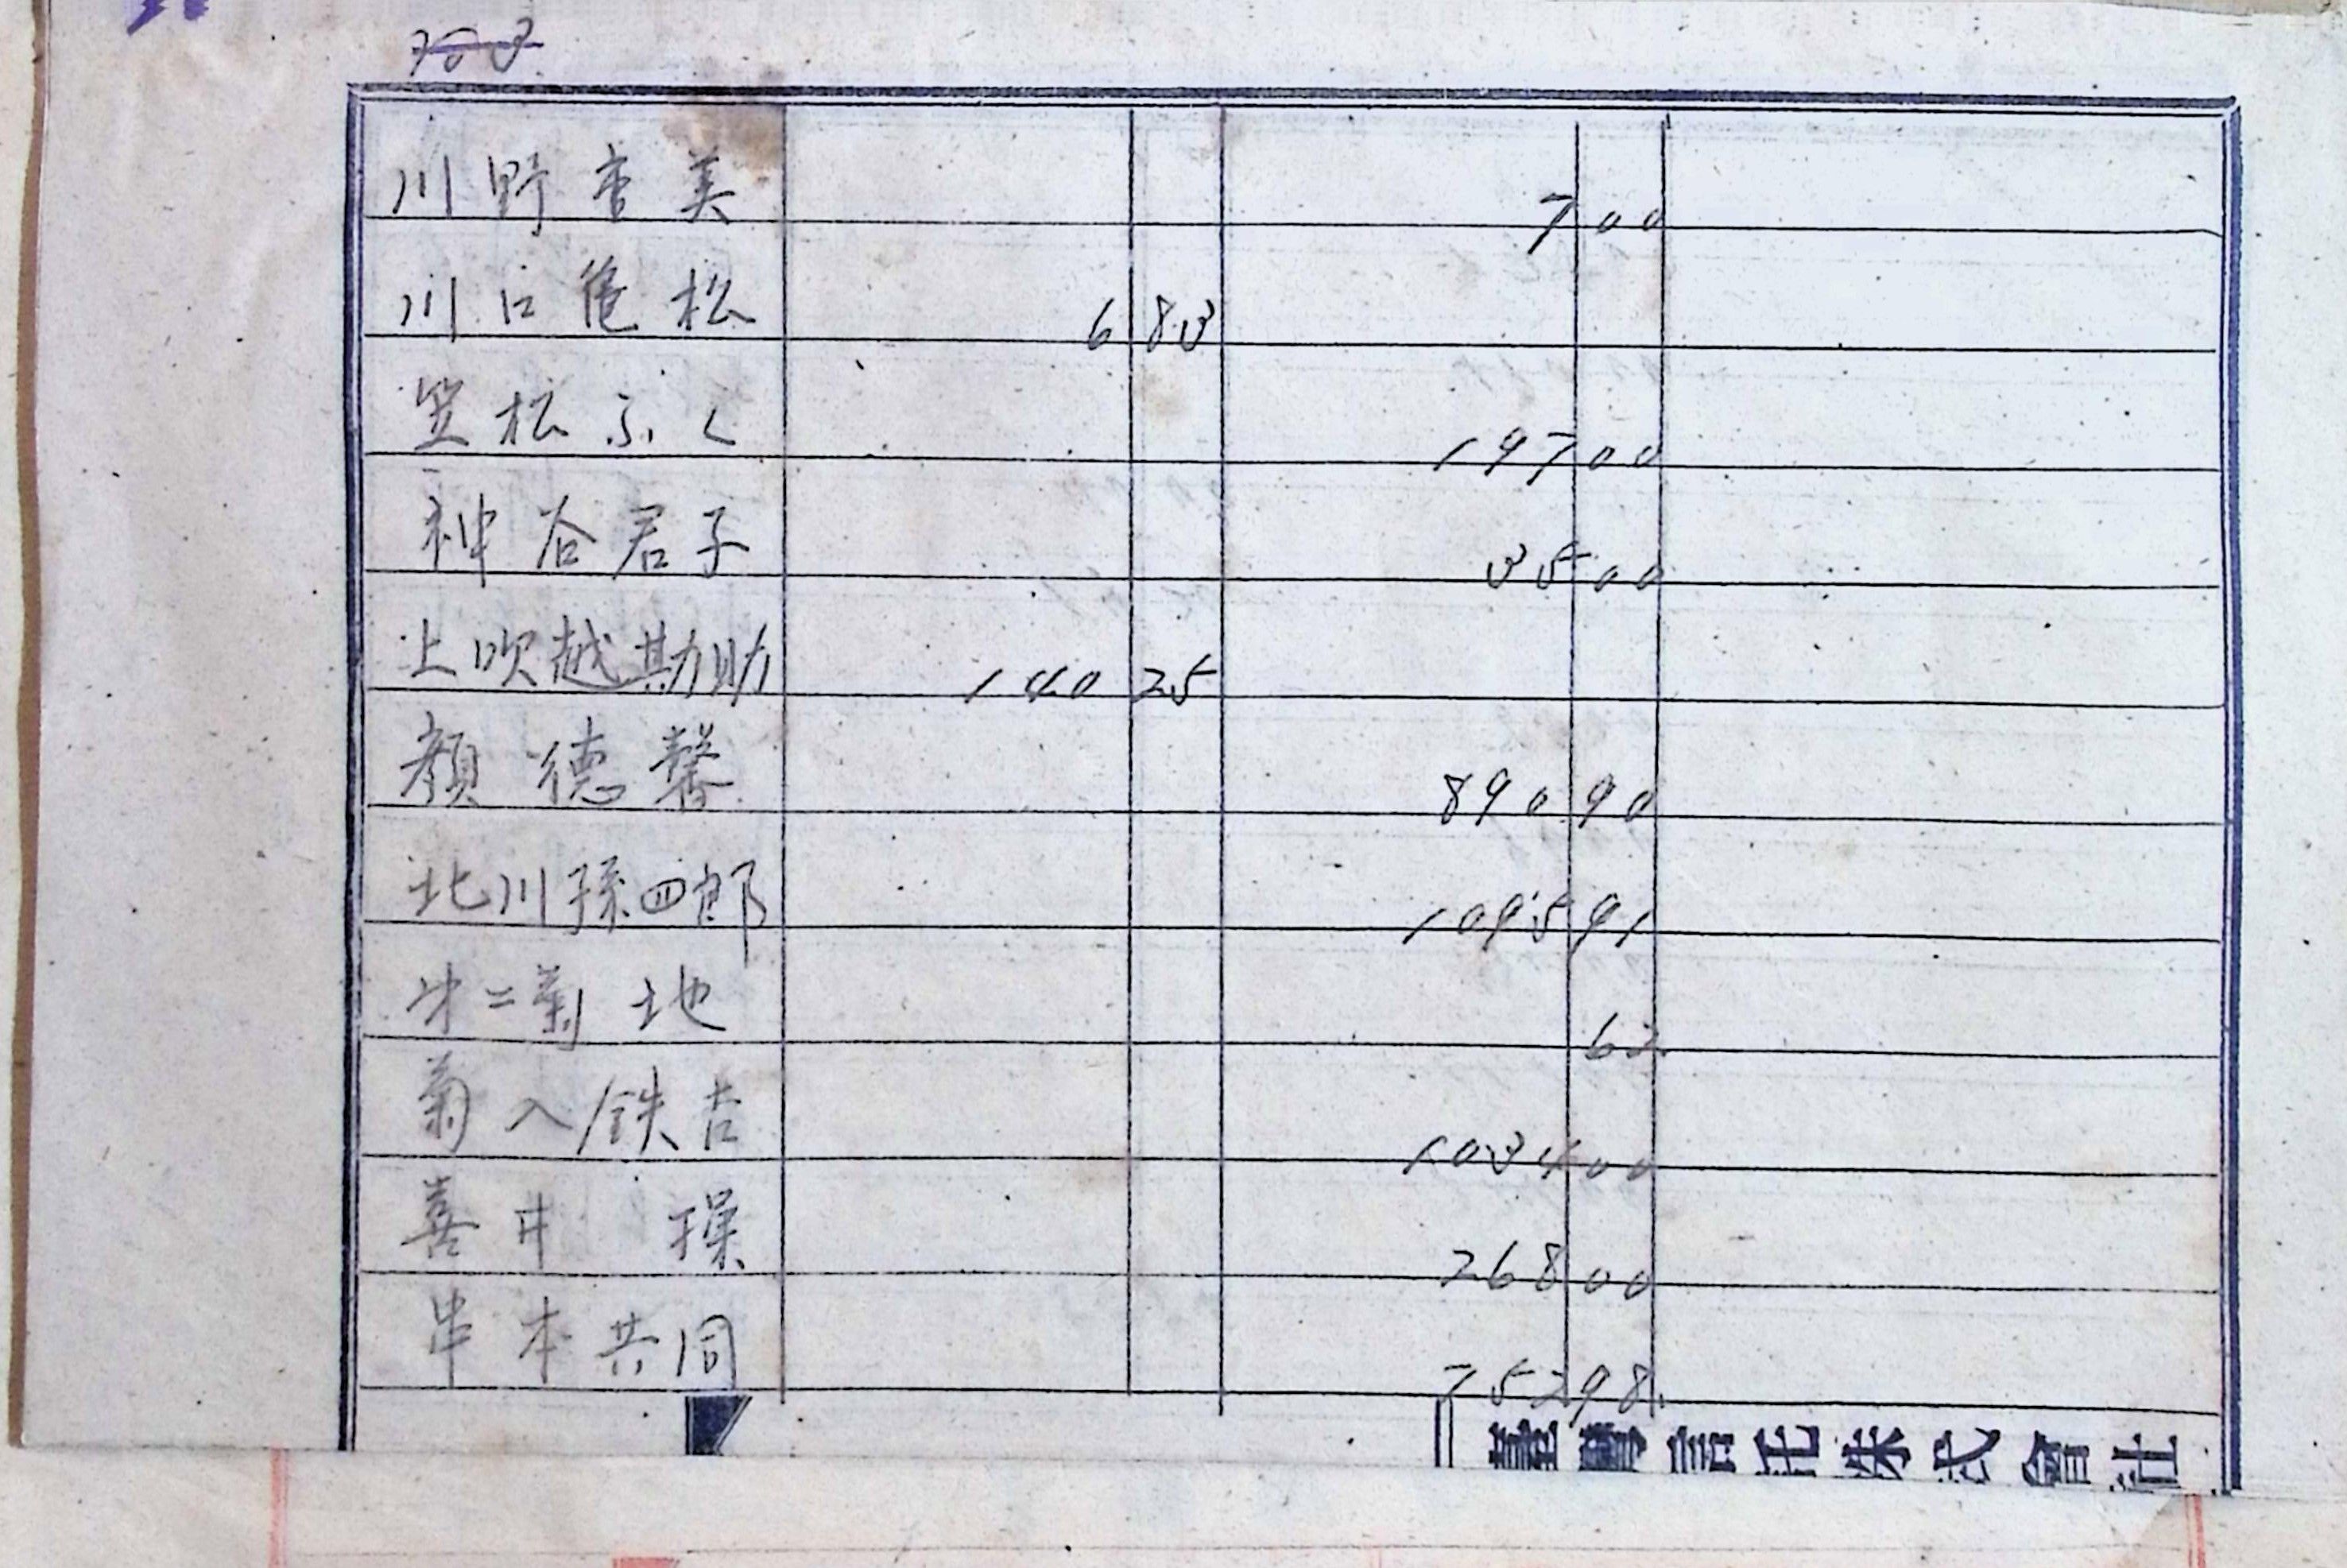 川野杏美 7 00
川口亀松 6 83
笠松ふく 197 00
神谷君子 35 00
上吹越勘助 140 25
顔德馨 890 90
北川孫四郎 1095 91
才二菊地 62
菊入鉄吉 1034 00
喜井 操 268 00
串本共同 752 98
臺灣信託株式會社